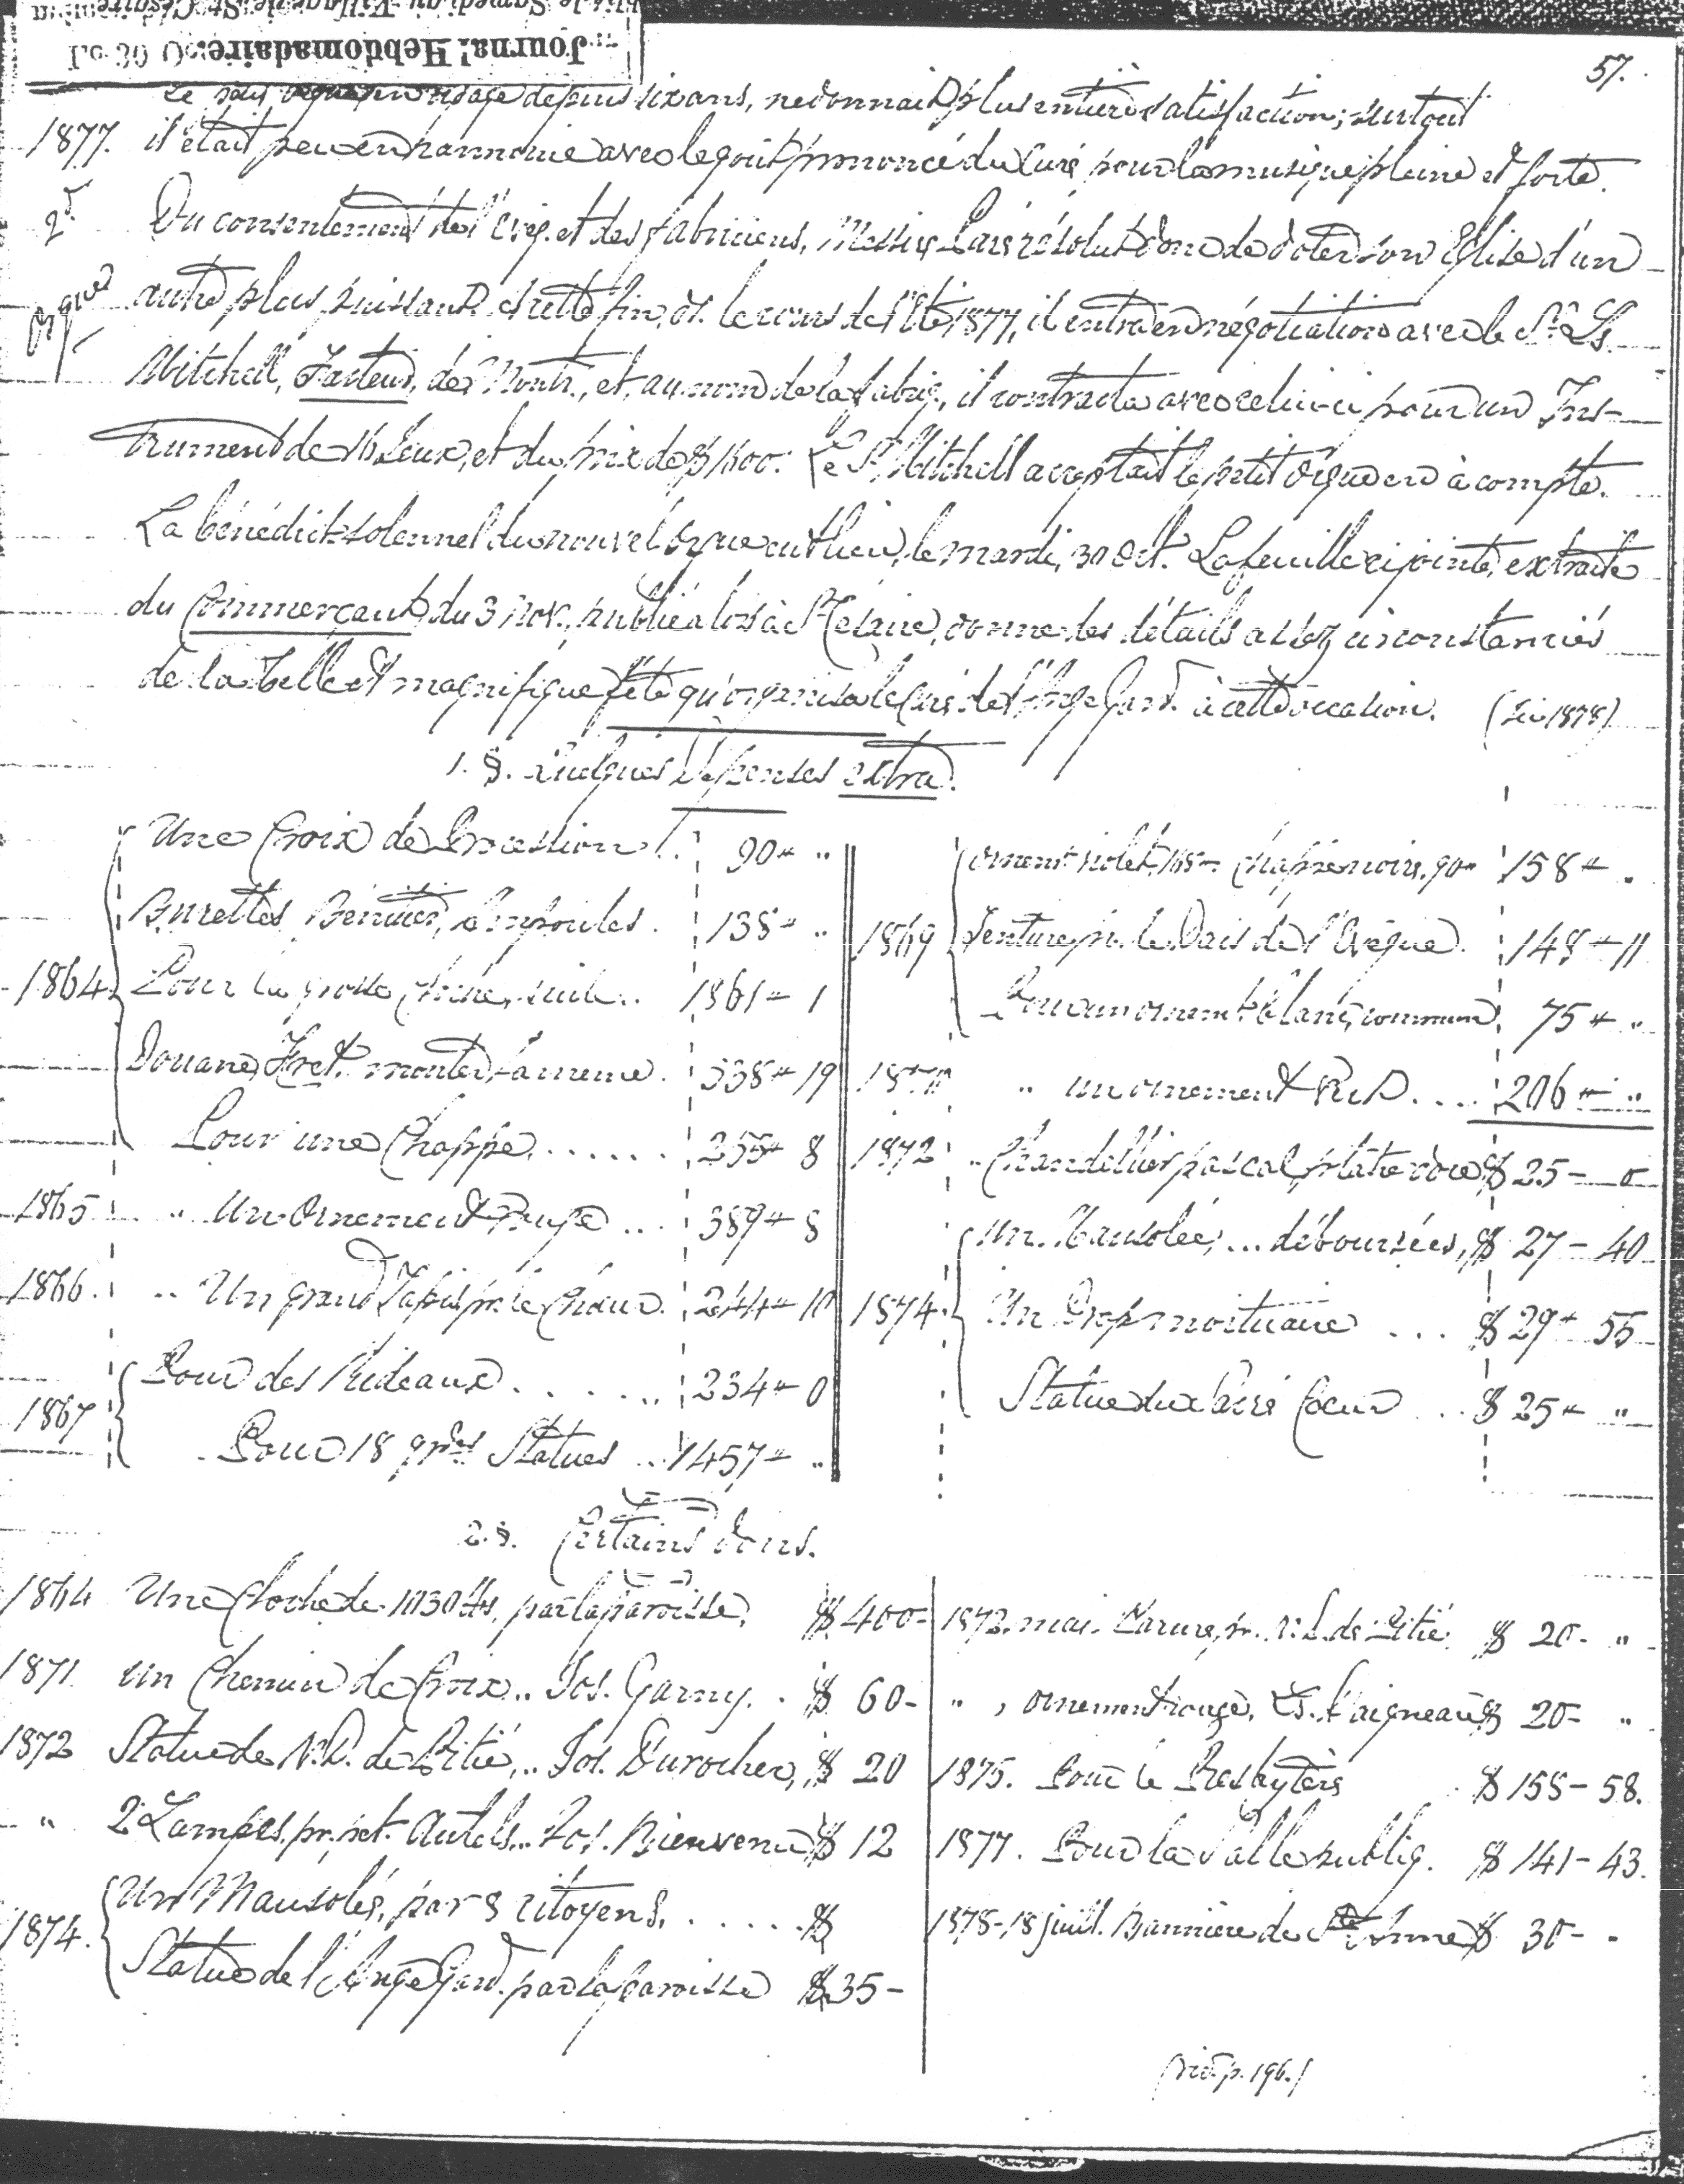 Publié le Samedi au Village de St. Césaire
Journal Hebdomadaire.
57.
Le petit orgue en usage depuis six ans, ne donnait plus entière satisfaction; surtout
1877. il était peu en harmonie avec le goût prononcé du Curé pour la musique pleine et forte.
2d Du consentement de l'Evêq. et des fabriciens, Messire Curé résolut donc de doter son Eglise d'un
orgue autre plus puissant. A cette fin, ds. le cours de l'Eté, 1877, il entra en négotiation avec le Sr. Ls.
Mitchell, Facteur, de Montr., et, au nom de la fabriq., il contracta avec celui-ci pour un Ins-
trument de 16 Jeux, et du prix de $1600. Le Sr. Mitchell acceptait le petit orgue en à compte.
La bénédict. solennel du nouvel orgue eut lieu, le mardi, 30 Oct. La feuille ci jointe, extraite
du Commerçant, du 3 nov., publié alors à St. Césaire, donne des détails assez circonstanciés
de la belle et magnifique fête qu'organisa le Curé de l'Ange Gard. à cette occasion. (1878)
1. §. Quelques Dépenses extra.
Une Croix de Procession 90 "
Burettes, Bénitier, Ampoules. 138 "
1864 Pour la grosse Cloche, seule.. 1361 1
Douane, Fret. monter, la même. 338 19
Pour une Chappe...... 255 8
1865 " Un Ornement Rouge... 389 8
1866. " Un grand Tapis pr. le Choeur. 244 10
1867 Pour des Rideaux....... 234 0
Pour 18 grdes Statues.. 1457 "
ornement violet, chappe noire, 90 158 "
1869 Tenture pr. le Dais de l'Evêque. 148 11
Pour un ornement blanc, commun, 75 "
" un ornement .... 206 "
1872 " Chandellier pascal, plâtre doré $ 25 - 0
Un Mausolée, ... déboursées, $ 27 - 40
1874. Un Drap mortuaire ... $ 29 - 55
Statue du Sacré Coeur ... $ 25 "
2. §. Certains dons.
1864 Une Cloche de 1030 lbs, par la paroisse, $ 400-
1871 Un Chemin de Croix.. Jos. Garny. . $ 60-
1872 Statue de N.D. de Pitié,.. Jos. Durocher, $ 20
" 2 Lampes. pr. pet. Autels... Jos. Bienvenu $ 12
1874. Un Mausolée, par 8 citoyens. ..... $
Statue de l'Ange Gard. par la paroisse $ 35-
mai. Parure, pr. N.D. de Pitié. $ 20- "
" , ornement rouge, Ls. $ 20- "
1875. Pour le Presbytère $ 158 - 58.
1877. Pour la Salle publiq. $ 141 - 43.
1878-18 juill. Bannière de Ste. Anne $ 30- -
(vid. p. 196.)